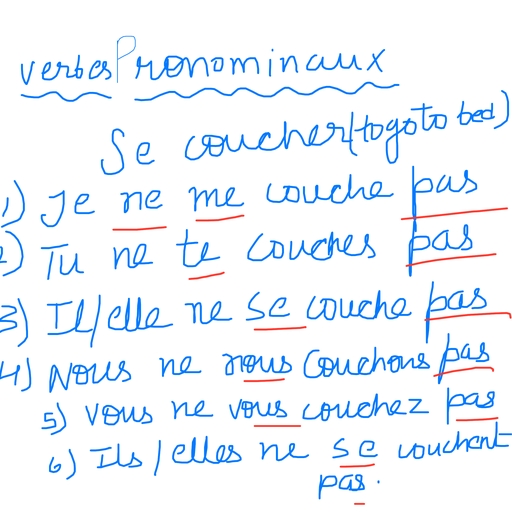 verbes Pronominaux
Se coucher (to go to bed)
1) Je ne me couche pas
2) Tu ne te couches pas
3) Il/elle ne se couche pas
4) Nous ne nous couchons pas
5) vous ne vous couchez pas
6) Ils/elles ne se couchent
pas.